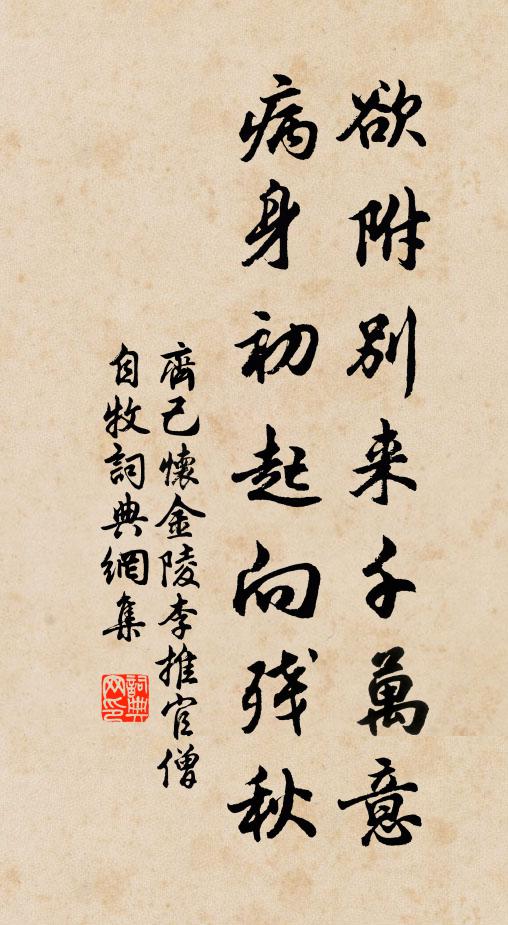 欲附别来千萬意
病身初起向残秋
齊己懷金陵李推官僧
自牧詞典網集
詞典
网印